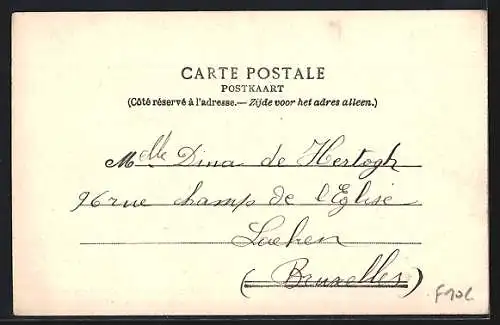 CARTE POSTALE
POSTKAART
(Côté réservé à l'adresse.— Zijde voor het adres alleen.)
Melle Dina de Hertogh
96 rue champ de l'Eglise
Laeken
(Bruxelles)